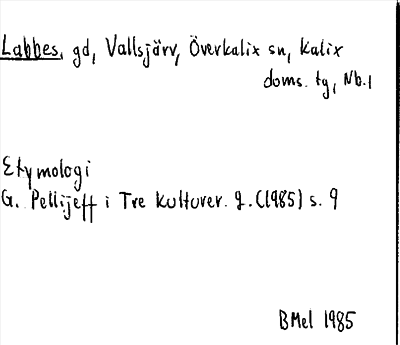 Labbes, gd, Vallsjärv, Överkalix sn, Kalix
doms. tg, Nb.l
Etymologi
G. Pellijeff i Tre kulturer. 2. (1985) s. 9
BMel 1985